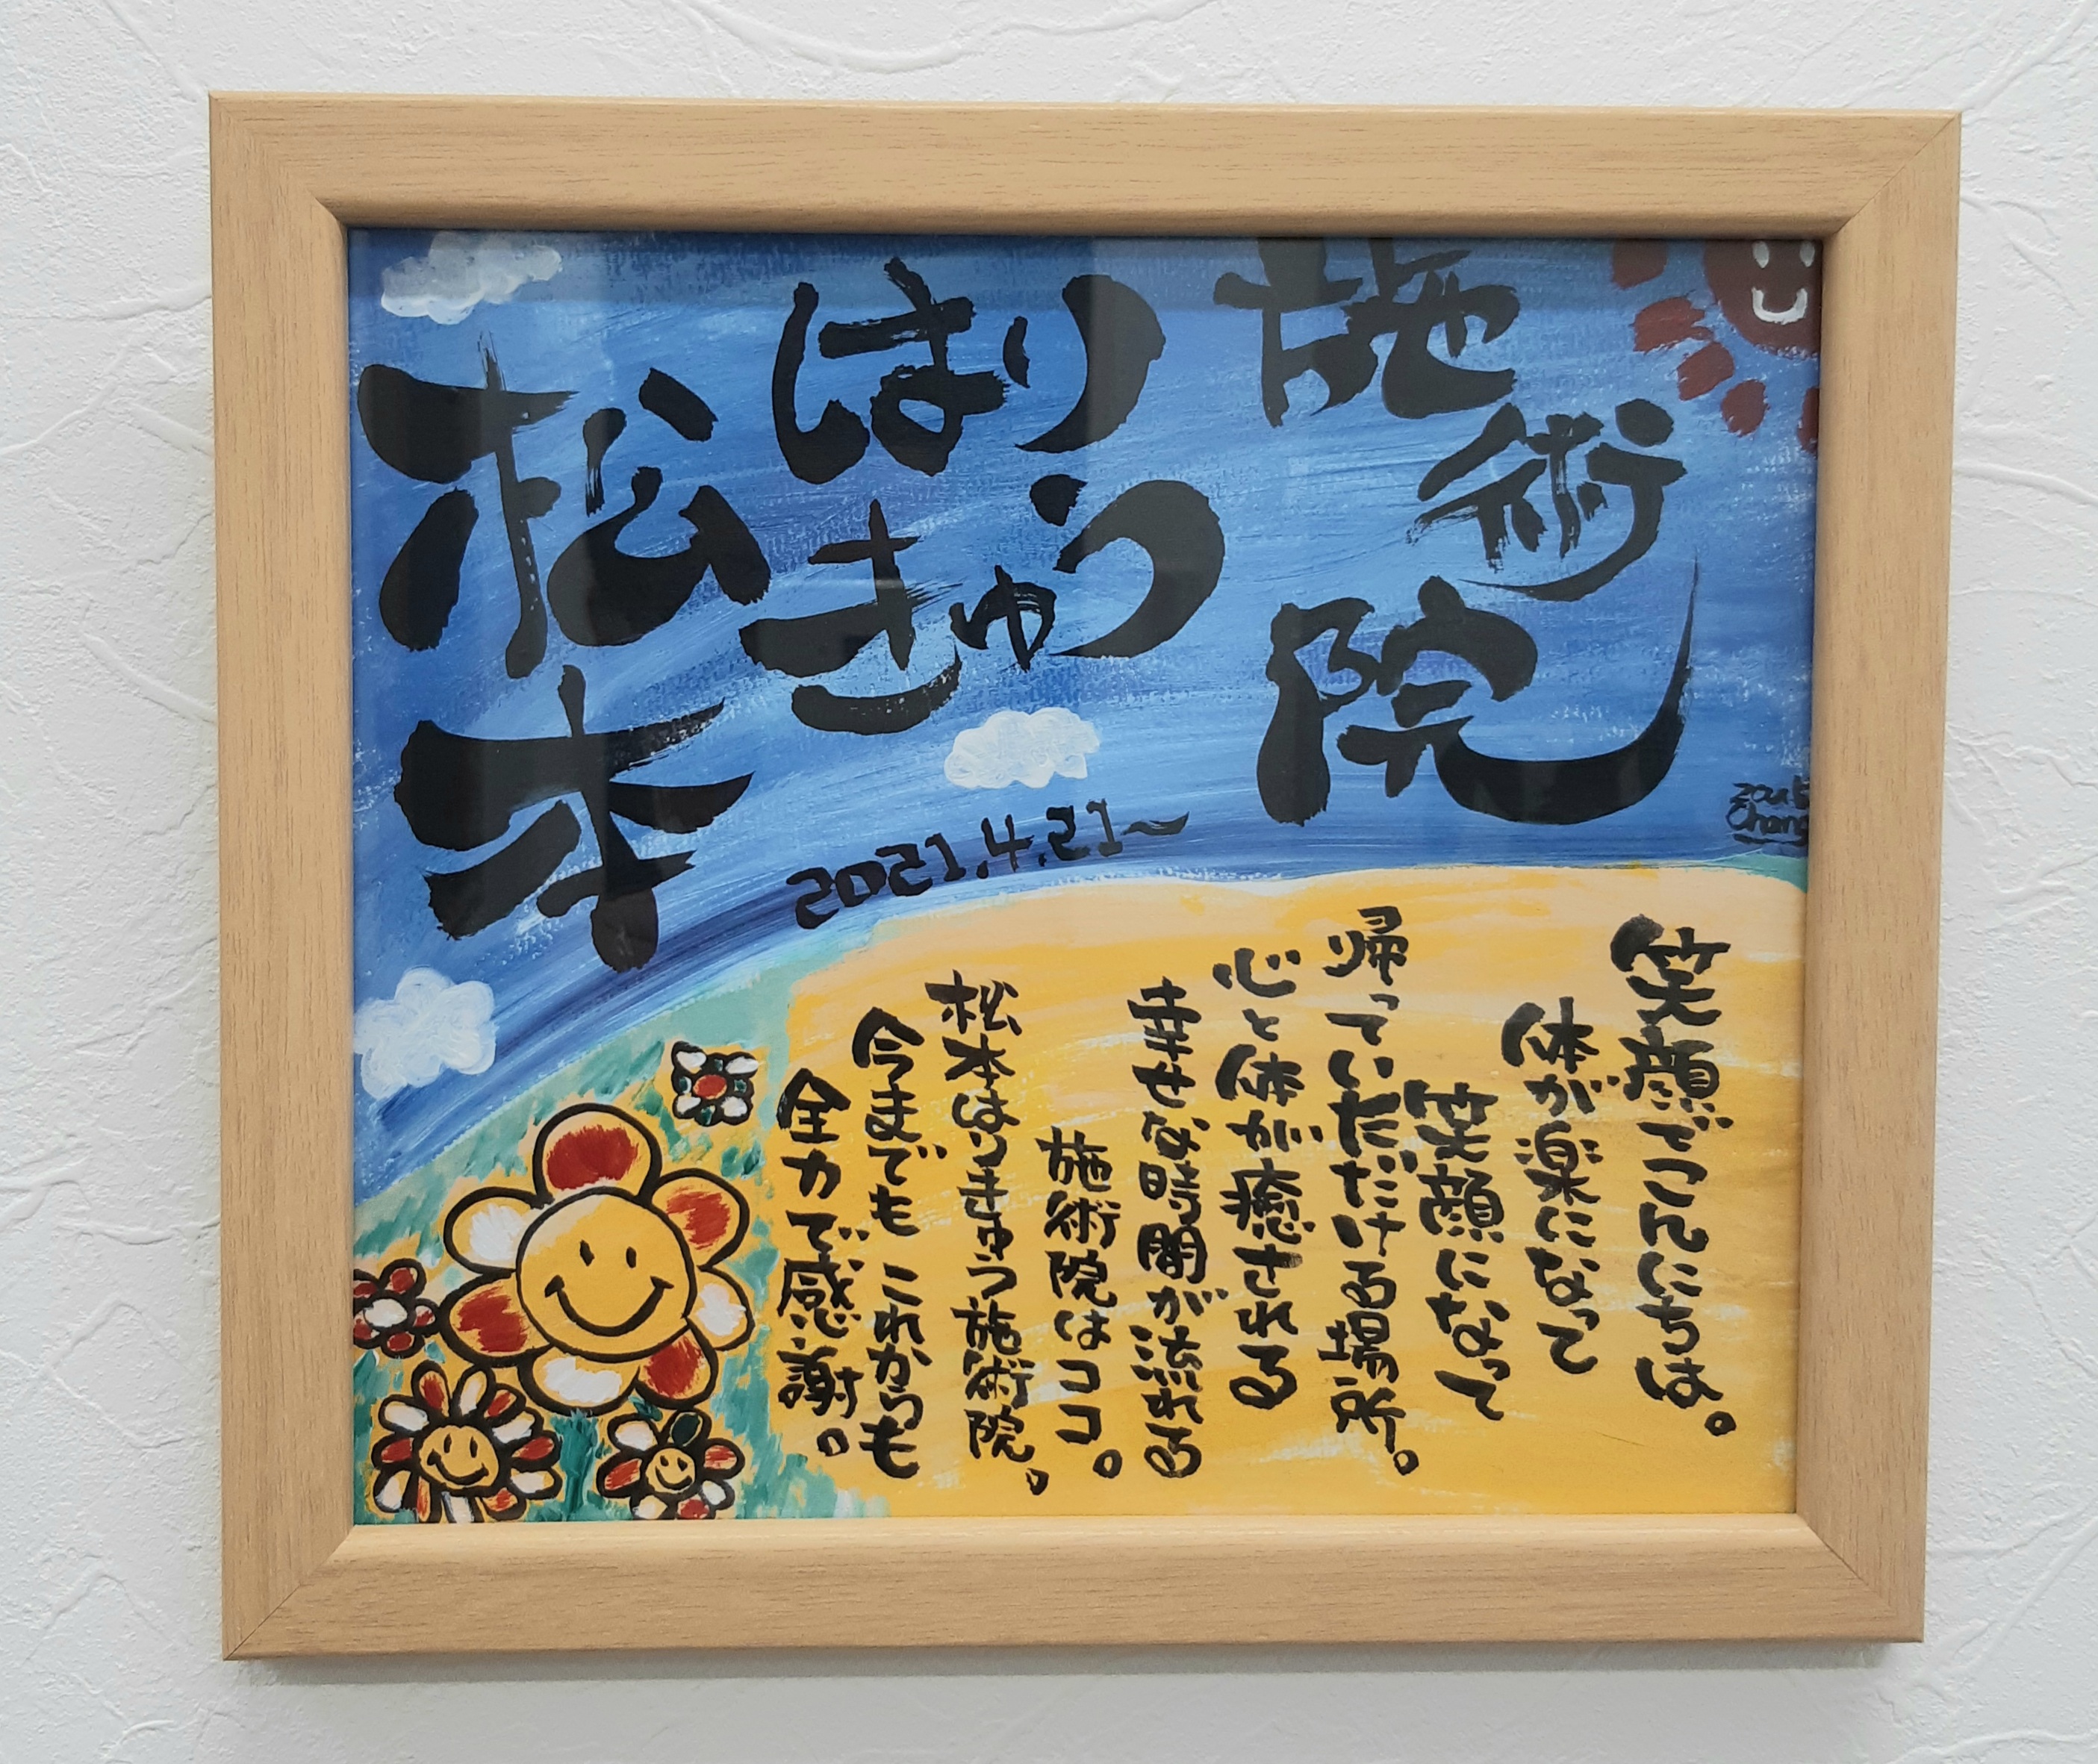 松本
はりきゅう
施術院
2021.4.21〜
笑顔でこんにちは。
体が楽になって
笑顔になって
帰っていただける場所。
心と体が癒される
幸せな時間が流れる
施術院はココ。
松本はりきゅう施術院。
今までも これからも
全力で感謝。